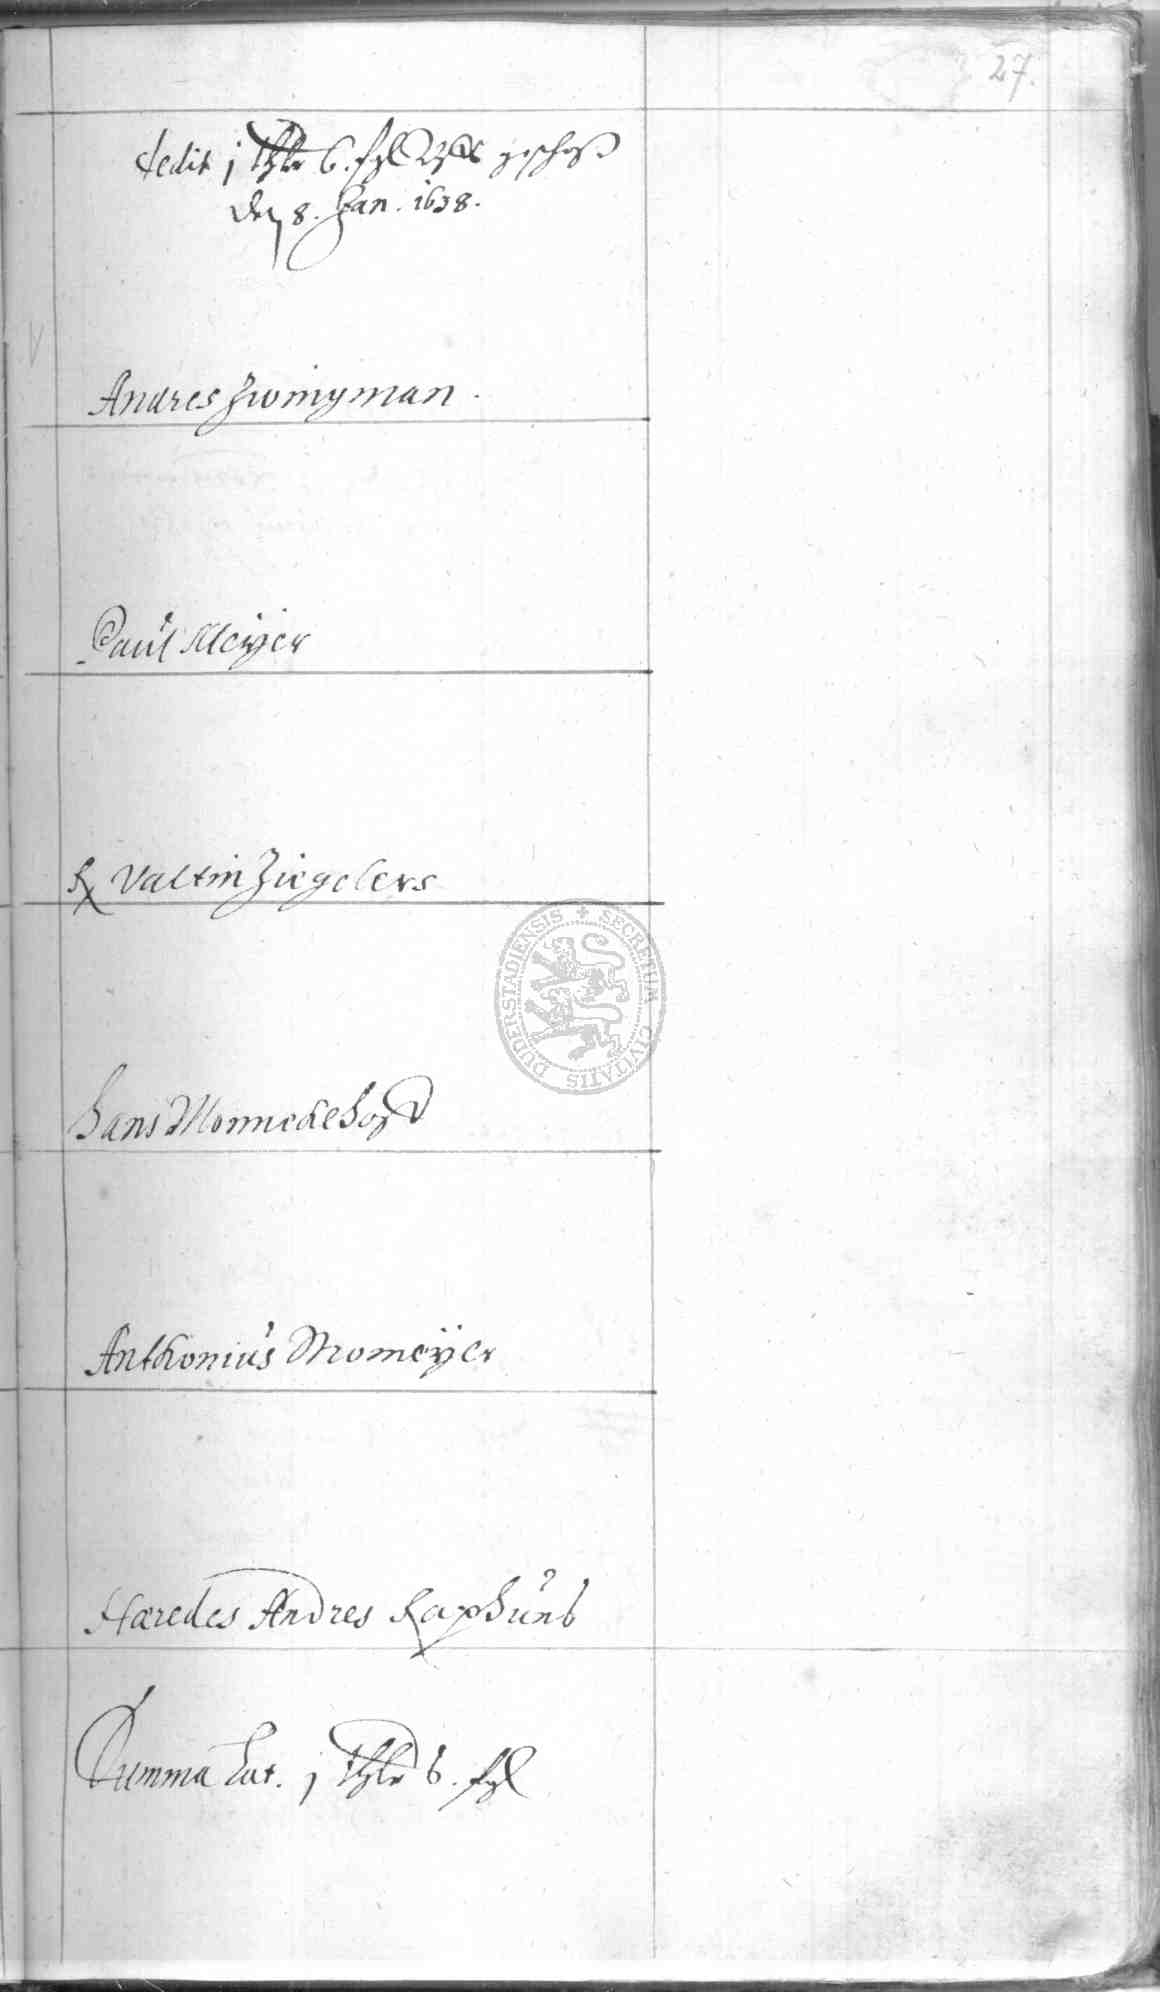 27.
dedit j thlr 6. ßgl geschoß
den 8. Jan. 1638.
Andres Zwingman.
Paul Meÿer
Valtin Ziegelers
Hans Monnekehoff
Anthonius Momeÿer
Hæredes Andres Raphuns
Summa Lat. j thlr 6. ßgl
SECRETUM CIVITATIS DUDERSTADIENSIS